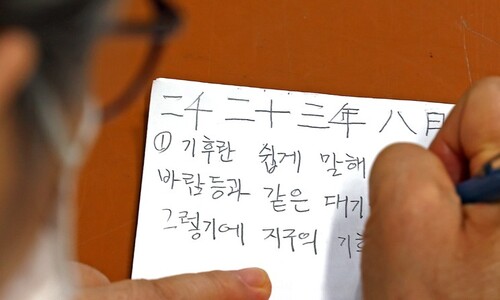 二千 二十三年 八月
① 기후란 쉽게 말해
바람등과 같은 대기
그렇기에 지구의 기후